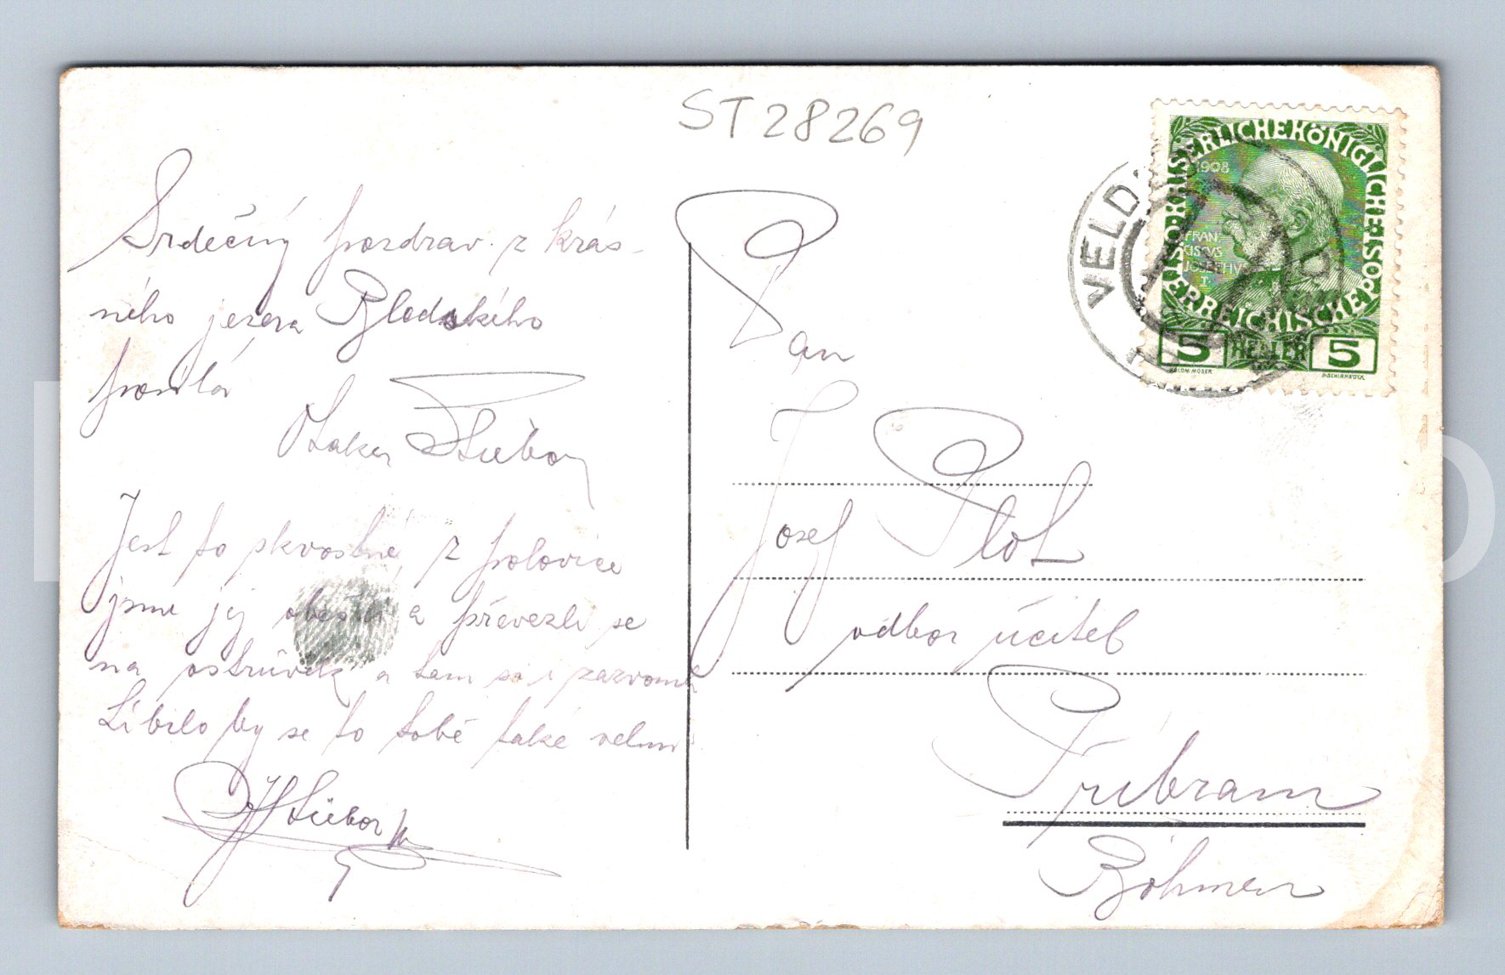 ST28269
Srdečný pozdrav z krás-
ného jezera Bledského
posílá
Otakar Stübor
Jest to skvostné, z polovice
jsme jej obešli a převezli se
na ostrůvek a tam si i zazvonili
Líbilo by se to tobě také velmi
Stübor
Pan
Josef Plot
odbor učitel
Příbram
Böhmen
VELD
KAISERLICHE KÖNIGLICHE ÖSTERREICHISCHE POST
1908
FRAN
CISCVS
IOSEPHVS
I
5 HELLER 5
KOLOM. MOSER
F. SCHIRNBÖCK